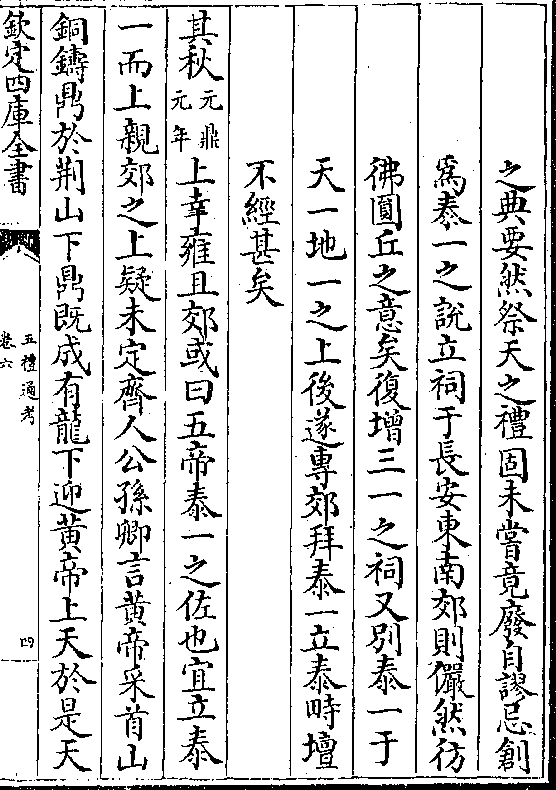 之典要然祭天之禮固未嘗竟廢自謬忌創
爲泰一之說立祠于長安東南郊則儼然彷
彿圓丘之意矣復增三一之祠又別泰一于
天一地一之上後遂專郊拜泰一立泰畤壇
不經甚矣
其秋元鼎元年上幸雍且郊或曰五帝泰一之佐也宜立泰
一而上親郊之上疑未定齊人公孫卿言黃帝采首山
銅鑄鼎於荆山下鼎既成有龍下迎黃帝上天於是天
欽定四庫全書
五禮通考
卷六
四